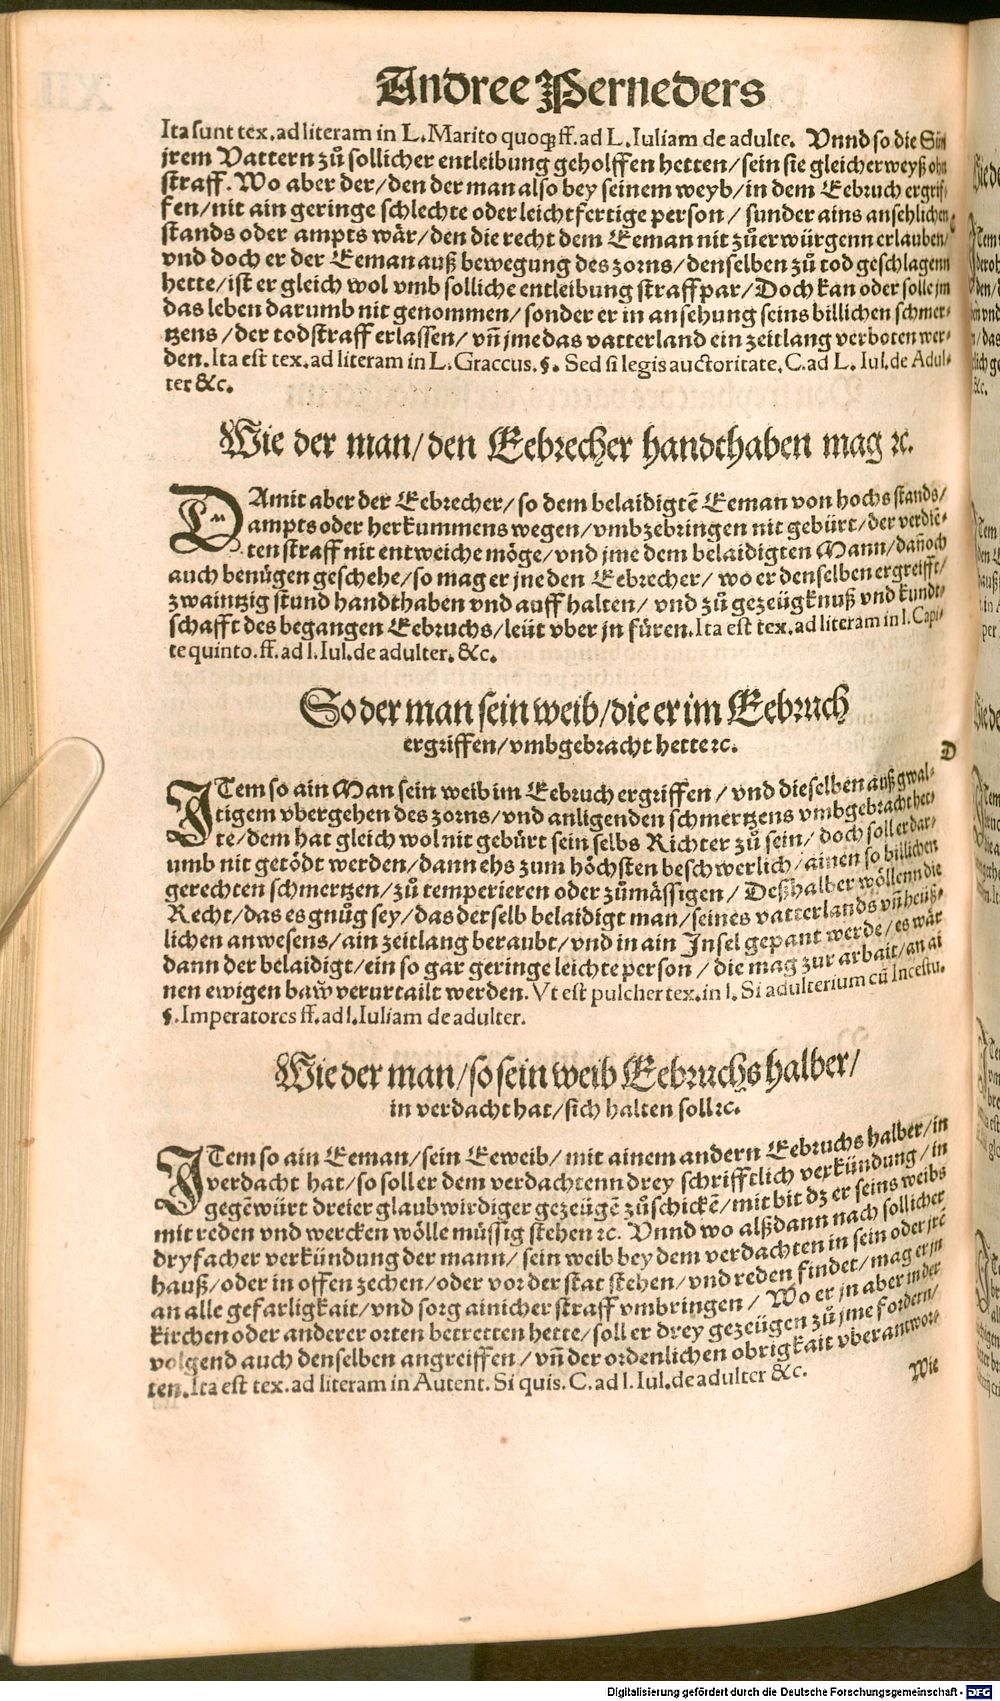 Andree Perneders
Ita sunt tex. ad literam in L. Marito quoqꝫ ff. ad L. Iuliam de adulte. Vnnd so die Sün
jrem Vattern zů sollicher entleibung geholffen hetten/ sein sie gleicher weyß ohn
straff. Wo aber der/ den der man also bey seinem weyb/ in dem Eebruch ergrif-
fen/ nit ain geringe schlechte oder leichtfertige person/ sunder ains ansehlichen
stands oder ampts wär/ den die recht dem Eeman nit zůerwürgenn erlauben/
vnd doch er der Eeman auß bewegung des zorns/ denselben zů tod geschlagenn
hette/ ist er gleich wol vmb solliche entleibung straffpar/ Doch kan oder solle jm
das leben darumb nit genommen/ sonder er in ansehung seins billichen schmer-
tzens/ der todstraff erlassen/ vñ jme das vatterland ein zeitlang verboten wer-
den. Ita est tex. ad literam in L. Graccus. §. Sed si legis auctoritate, C. ad L. Iul. de Adul-
ter &c.
Wie der man/ den Eebrecher handthaben mag ꝛc.
DAmit aber der Eebrecher/ so dem belaidigtẽ Eeman von hochs stands/
ampts oder herkummens wegen/ vmbzebringen nit gebürt/ der verdiẽ-
ten straff nit entweiche möge/ vnd jme dem belaidigten Mann/ dañoch
auch benügen geschehe/ so mag er jne den Eebrecher/ wo er denselben ergreifft/
zwaintzig stund handthaben vnd auff halten/ vnd zů gezeügknuß vnd kundt-
schafft des begangen Eebruchs/ leüt vber jn füren. Ita est tex. ad literam in l. Capi-
te quinto. ff. ad l. Iul. de adulter. &c.
So der man sein weib/ die er im Eebruch
ergriffen/ vmbgebracht hette ꝛc.
D
ITem so ain Man sein weib im Eebruch ergriffen/ vnd dieselben auß gwal-
tigem vbergehen des zorns/ vnd anligenden schmertzens vmbgebracht het-
te/ dem hat gleich wol nit gebürt sein selbs Richter zů sein/ doch soll er dar-
umb nit getödt werden/ dann ehs zum höchsten beschwerlich/ ainen so billichen
gerechten schmertzen/ zů temperieren oder zůmässigen/ Deßhalber wöllenn die
Recht/ das es gnůg sey/ das derselb belaidigt man/ seines vatterlands vñ heüß-
lichen anwesens/ ain zeitlang beraubt/ vnd in ain Insel gepant werde/ es wär
dann der belaidigt/ ein so gar geringe leichte person/ die mag zur arbait/ an ai
nen ewigen baw̃ verurtailt werden. Vt est pulcher tex. in l. Si adulterium cũ Incestu.
§. Imperatores ff. ad l. Iuliam de adulter.
Wie der man/ so sein weib Eebruchs halber/
in verdacht hat/ sich halten soll ꝛc.
ITem so ain Eeman/ sein Eeweib/ mit ainem andern Eebruchs halber/ in
verdacht hat/ so soll er dem verdachtenn drey schrifftlich verkündung/ in
gegẽwürt dreier glaubwirdiger gezeügẽ zůschickẽ/ mit bit dz er seins weibs
mit reden vnd wercken wölle müssig stehen ꝛc. Vnnd wo alßdann nach sollicher
dryfacher verkündung der mann/ sein weib bey dem verdachten in sein oder jrẽ
hauß/ oder in offen zechen/ oder vor der stat stehen/ vnd reden findet/ mag er jn
an alle gefarligkait/ vnd sorg ainicher straff vmbringen/ Wo er jn aber in der
kirchen oder anderer orten betretten hette/ soll er drey gezeügen zů jme fordern/
volgend auch denselben angreiffen/ vñ der ordenlichen obrigkait vberantwor-
ten. Ita est tex. ad literam in Autent. Si quis. C. ad l. Iul. de adulter &c.
Wie
Digitalisierung gefördert durch die Deutsche Forschungsgemeinschaft - DFG